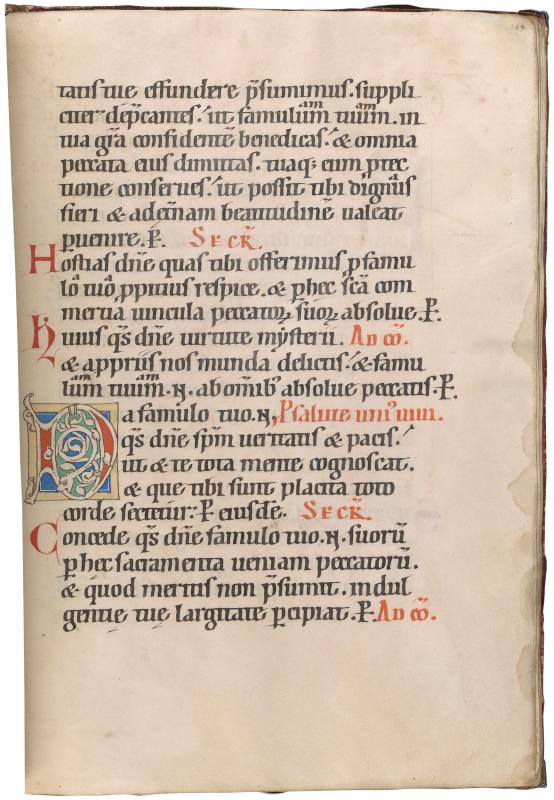 tatis tue effundere p̄sumimus. suppli
citer dep̄cantes.' ut famulūm tuūm. in
tua gr̄a confidentē benedicas.' & omnia
peccata eius dimittas. tuaq; eum ꝓtec
tione conserues.' ut possit tibi dignus
fieri & adet̄nam beatitudinē ualeat
ꝑuenire. P̄. SECR̄.
Hostias dn̄e quas tibi offerimus ꝓ famu
lo tuo ꝓpitius respice. & ꝑ hec sc̄a com
mertia uincula peccatoꝝ suoꝝ absolue. P̄.
Huius qs̄ dn̄e uirtute mẏsterii. AD CŌ.
& a ppriis nos munda delictis.' & famu
lūm tuūm. N. ab omib' absolue peccatis. P̄.
Da famulo tuo. N, P salute uni' uiui.
qs̄ dn̄e sp̄m ueritatis & pacis.'
ut & te tota mente cognoscat.
& que tibi sunt placita toto
corde sectetur.' P̄ eiusdē. SECR̄.
Concede qs̄ dn̄e famulo tuo. N. suorū
ꝑ hec sacramenta ueniam peccatorū.
& quod meritis non p̄sumit. indul
gentie tue largitate ꝑcipiat. P̄. AD CŌ.